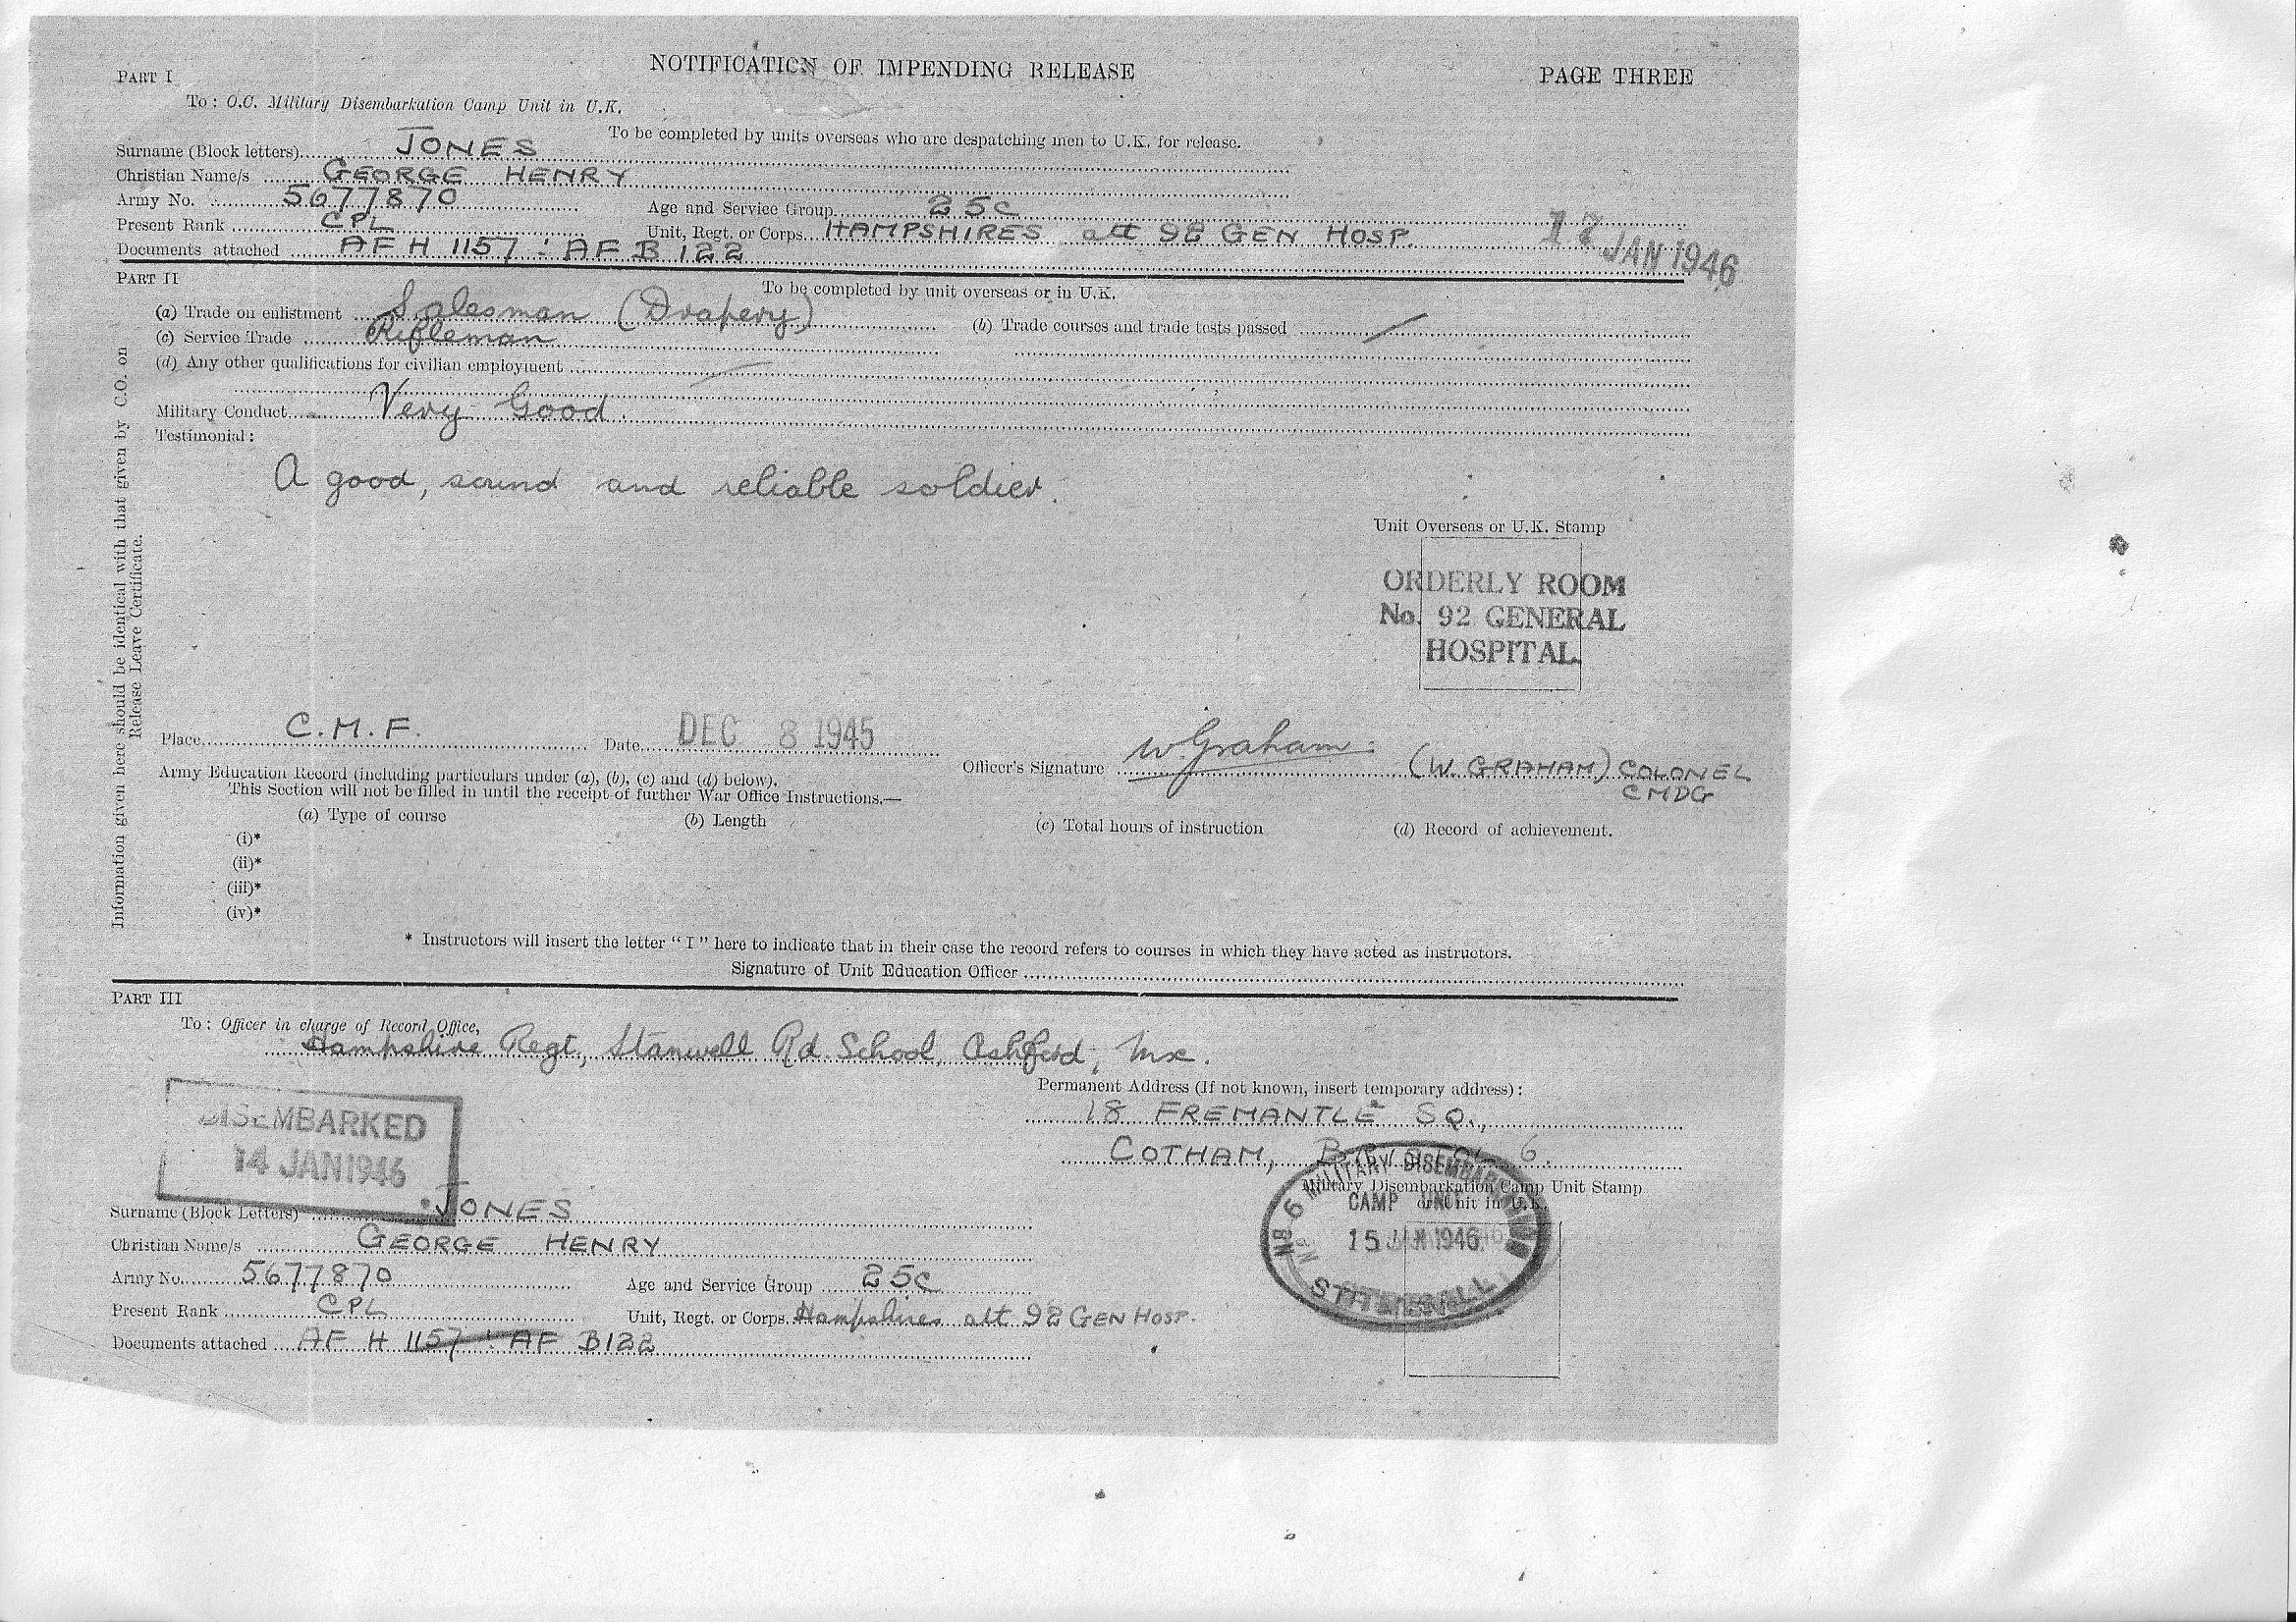 PART I
NOTIFICATION OF IMPENDING RELEASE
PAGE THREE
To : O.C. Military Disembarkation Camp Unit in U.K.
To be completed by units overseas who are despatching men to U.K. for release.
Surname (Block letters) JONES
Christian Name/s GEORGE HENRY
Army No. 5677870
Age and Service Group 25C
Present Rank CPL
Unit, Regt. or Corps. HAMPSHIRES att 92 GEN HOSP.
17 JAN 1946
Documents attached AF H 1157 : AF B 122
PART II
To be completed by unit overseas or in U.K.
(a) Trade on enlistment Salesman (Drapery)
(b) Trade courses and trade tests passed
(c) Service Trade Rifleman
(d) Any other qualifications for civilian employment
Military Conduct Very Good.
Testimonial :
A good, sound and reliable soldier.
Information given here should be identical with that given by C.O. on
Release Leave Certificate.
Unit Overseas or U.K. Stamp
ORDERLY ROOM
No. 92 GENERAL
HOSPITAL.
Place C.M.F.
Date DEC 8 1945
Officer's Signature W. Graham. (W. GRAHAM) COLONEL
CMDG
Army Education Record (including particulars under (a), (b), (c) and (d) below).
This Section will not be filled in until the receipt of further War Office Instructions.—
(a) Type of course
(b) Length
(c) Total hours of instruction
(d) Record of achievement.
(i)*
(ii)*
(iii)*
(iv)*
* Instructors will insert the letter “ I ” here to indicate that in their case the record refers to courses in which they have acted as instructors.
Signature of Unit Education Officer
PART III
To : Officer in charge of Record Office,
Hampshire Regt, Stanwell Rd. School, Ashford, Mx.
Permanent Address (If not known, insert temporary address) :
18 FREMANTLE SQ.,
COTHAM, BRISTOL 6.
DISEMBARKED
14 JAN 1946
Military Disembarkation Camp Unit Stamp
or Unit in U.K.
No 6 MILITARY DISEMBARKATION
CAMP UNIT
15 JAN 1946
Surname (Block Letters) JONES
Christian Name/s GEORGE HENRY
Army No. 5677870
Age and Service Group 25C
Present Rank CPL
Unit, Regt. or Corps. Hampshires att 92 GEN HOSP.
Documents attached AF H 1157 : AF B122